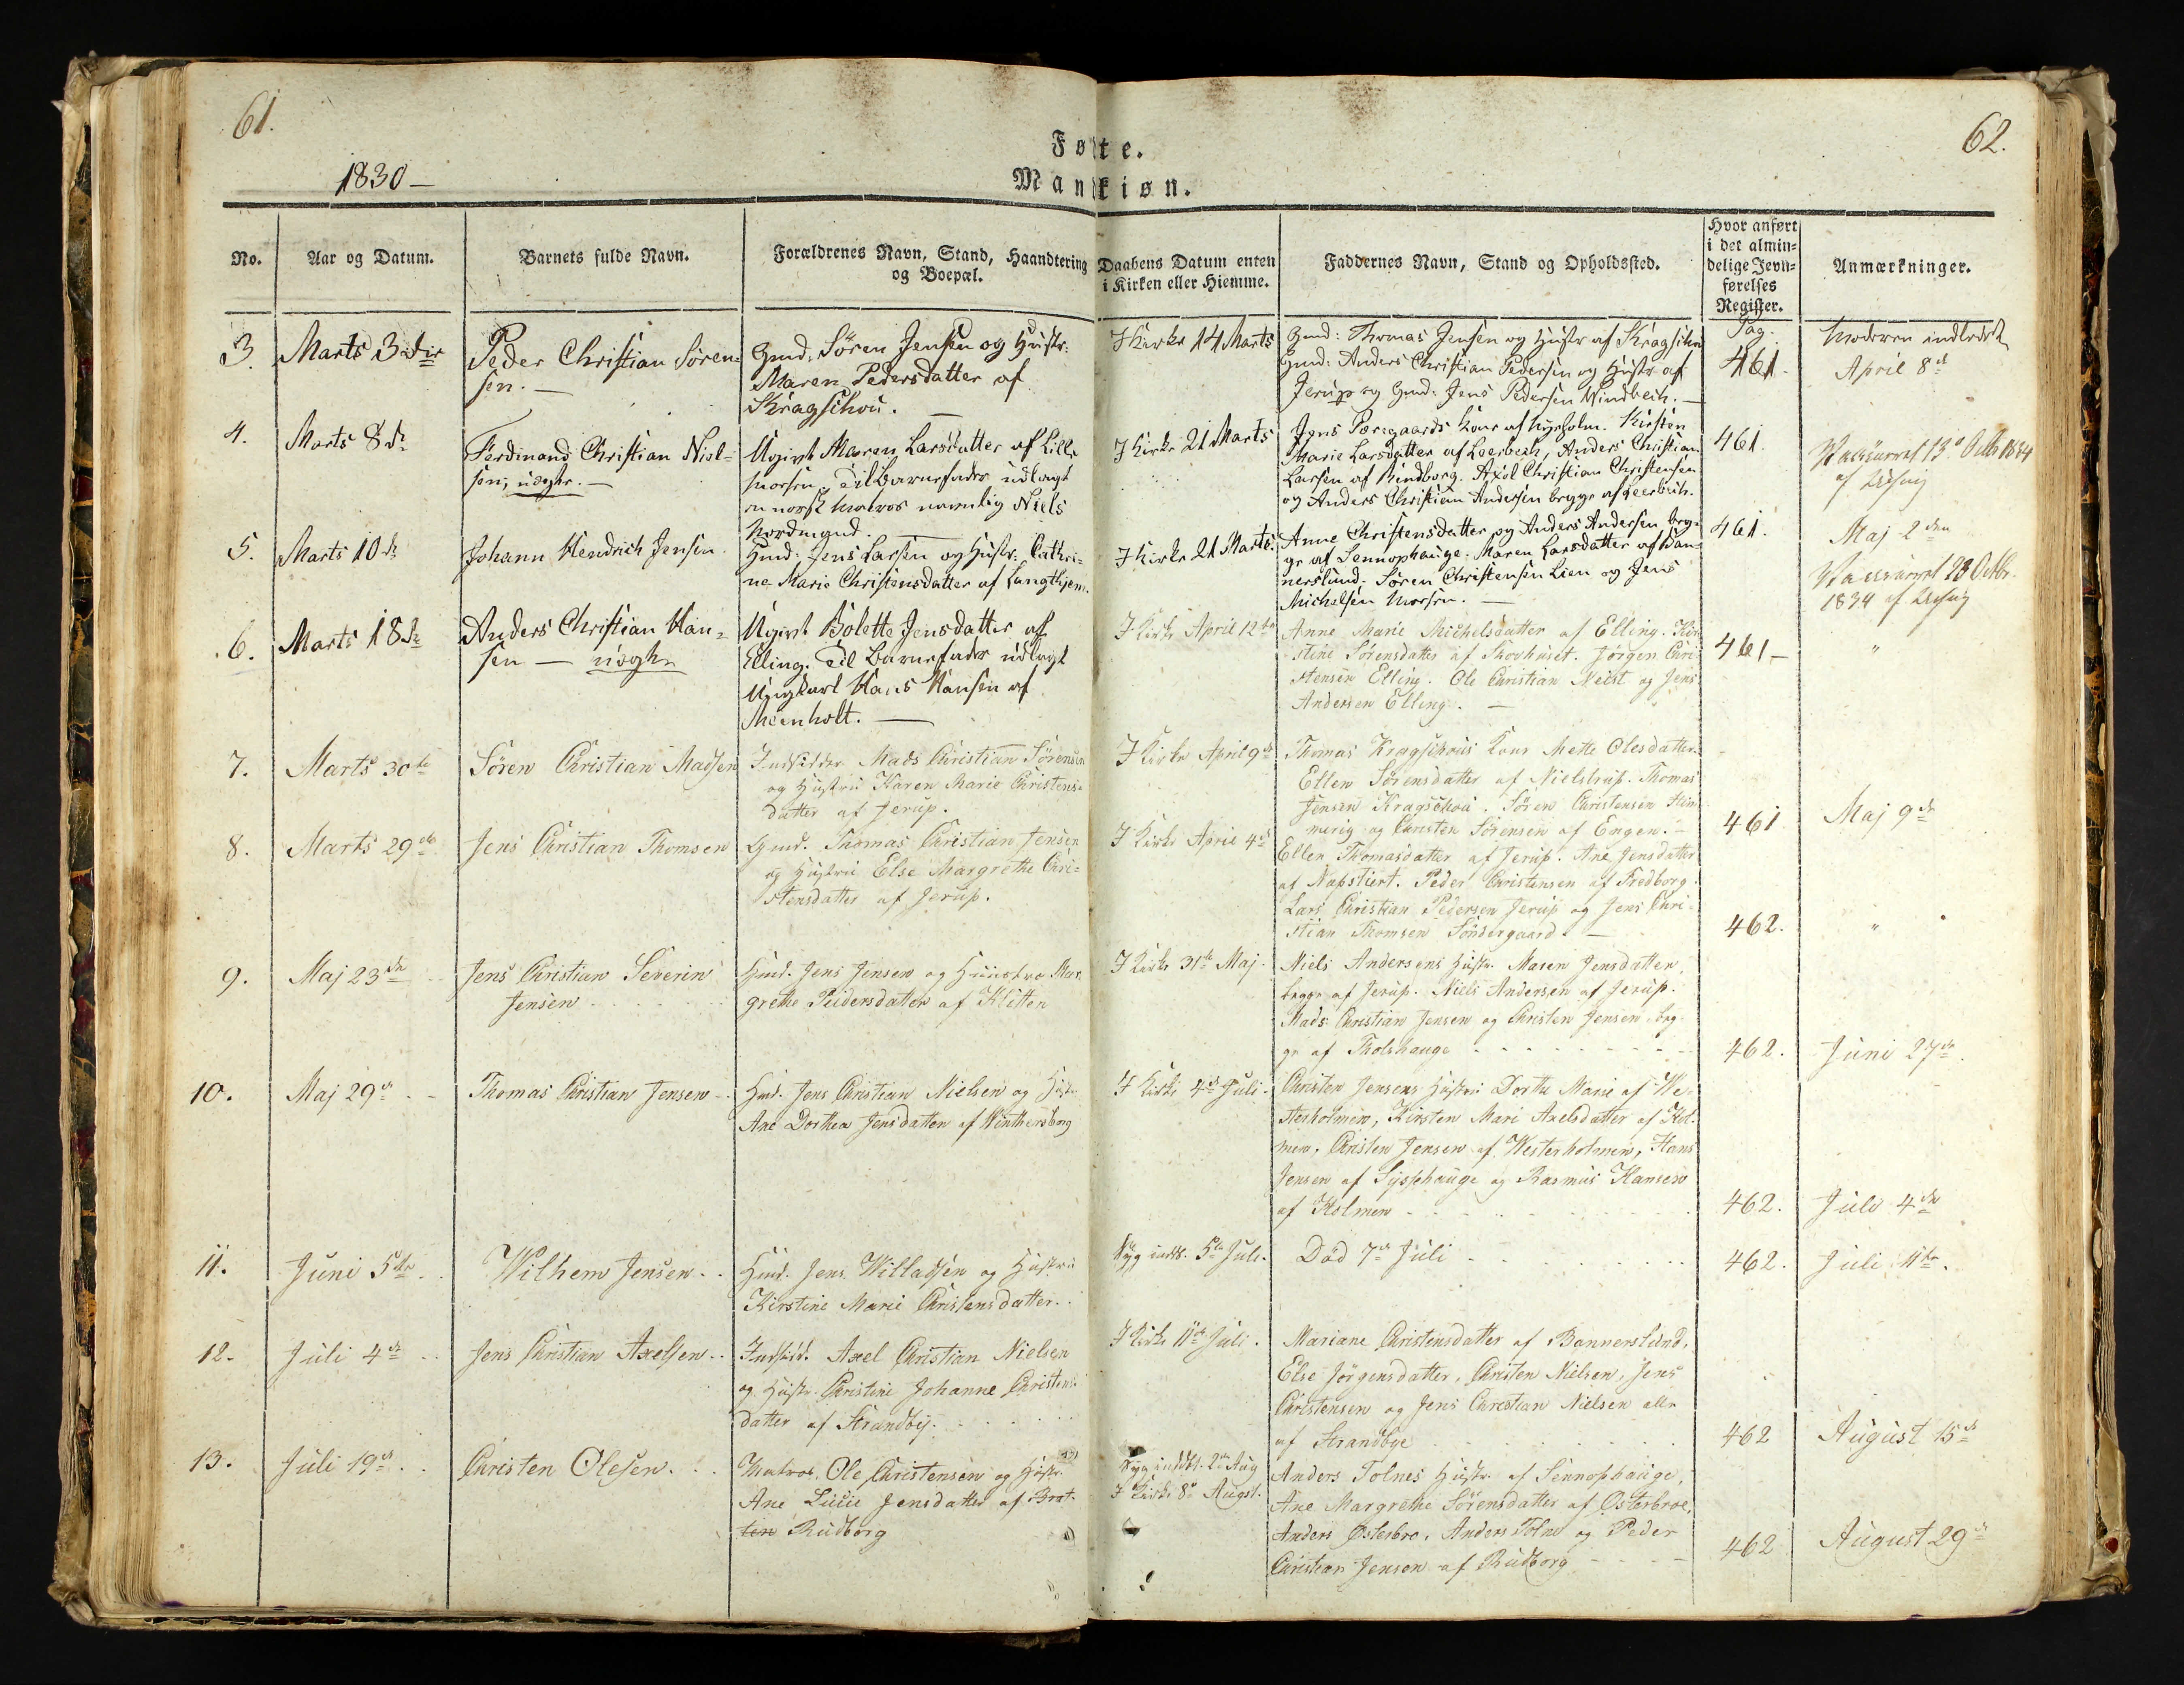 61.
62.
Føtte.
1830 —
Mandkiøn.
No.
Aar og Datum.
Barnets fulde Navn.
Forældrenes Navn, Stand, Haandtering
og Boepæl.
Daabens Datum enten
i Kirken eller Hiemme.
Faddernes Navn, Stand og Opholdssted.
Hvor anført
i det almin-
delige Jevn-
førelses
Register.
Anmærkninger.
3.
Marts 3die
Peder Christian Sören-
sen. —
Hmd: Sören Jensen og Hustr:
Maren Pedersdatter af
Kragschou. —
I Kirke 14 Marts
Hmd: Thomas Jensen og Hustr af Kragschou
Hmd: Anders Christian Pedersen og Hustr af
Jerup og Hmd: Jens Pedersen Windbech. —
Pag.
461.
Moderen indledet
April 8de
4.
Marts 8de
Ferdinand Christian Niel-
sen, uægte. —
Ugivt Maren Larsdatter af Lille
Morsen. Til Barnefader udlagt
en norsk Matros namnlig Niels
Nordmand. —
I Kirke 21 Marts
Marie Larsdatter af Leerbech, Anders Christian
Larsen af Rindborg. Axel Christian Christensen
og Anders Christian Andersen begge af Leerbech.
461.
5.
Marts 10de
Johann Hendrich Jensen.
Hmd: Jens Larsen og Hustr: Cathri-
ne Marie Christensdatter af Langthjem.
I Kirke 21 Marts.
Anne Christensdatter og Anders Andersen beg-
ge af Sennophauge. Maren Larsdatter af Ban-
nerslund. Sören Christensen Lien og Jens
Michelsen Morsen. —
461.
Maj 2den
1834
6.
Marts 18de
Anders Christian Han-
sen — uægte
Ugivt Bolette Jensdatter af
Elling. Til Barnefader udlagt
Ungkarl Hans Hansen af
Meenholt. —
I Kirke April 12te
Anne Marie Michelsdatter af Elling. Kir-
stine Sörensdatter af Skovhuset. Jörgen Chri-
stensen Elling. Ole Christian Neist og Jens
Andersen Elling. —
461 —
"
7.
Marts 30te
Sören Christian Madsen
Indsidder Mads Christian Sörensen
og Hustru Karen Marie Christens-
datter af Jerup.
I Kirke April 9de
Thomas Kragschous Kone Mette Olesdatter.
Ellen Sörensdatter af Nielstrup. Thomas
Jensen Kragschou. Sören Christensen Him-
merig og Christen Sörensen af Engen. —
461
Maj 9de
8.
Marts 29de
Jens Christian Thomsen
Hmd. Thomas Christian Jensen
og Hustru Else Margrethe Chri-
stensdatter af Jerup.
I Kirke April 4de
Ellen Thomasdatter af Jerup. Ane Jensdatter
af Napstiert. Peder Christensen af Fredborg.
Lars Christian Pedersen Jerup og Jens Chri-
stian Thomsen Söndergaard. —
462.
"
9.
Maj 23de
Jens Christian Severin
Jensen
Hmd. Jens Jensen og Huustroe Mar-
grethe Peidersdatter af Klitten
I Kirke 31te Maj.
Niels Andersens Hustr. Maren Jensdatter,
begge af Jerup. Niels Andersen af Jerup.
Mads Christian Jensen og Christen Jensen beg-
ge af Tholshauge
462.
Juni 27de
10.
Maj 29de
Thomas Christian Jensen
Hmd. Jens Christian Nielsen og Hustr.
Ane Dorthea Jensdatter af Winthersborg
I Kirke 4de Juli.
Christen Jensens Hustru Dorthe Marie af We-
sterholmen, Kirsten Mari Axelsdatter af Hol-
men, Christen Jensen af Westerholmen, Hans
Jensen af Sysphauge og Rasmus Hansen
af Holmen
462.
Juli 4de
11.
Juni 5te
Wilhem Jensen
Hmd. Jens Willadsen og Hustru
Kirstine Marie Christensdatter.
5te Juli.
Död 7de Juli
462.
Juli 11te.
12.
Juli 4de
Jens Christian Axelsen
Indsid. Axel Christian Nielsen
og Hustr. Christine Johanne Christens-
datter af Strandby.
I Kirke 11te Juli.
Mariane Christensdatter af Bannerslund,
Else Jörgensdatter, Christen Nielsen, Jens
Christensen og Jens Christian Nielsen alle
af Strandbye
462
August 15de
13.
Juli 19de
Christen Olesen.
Matros. Ole Christensen og Hustr.
Ane Lucie Jensdatter af Brat-
ten Rudborg
2den Aug
I Kirke 8de Augst.
Anders Tolnes Hustr. af Sennophauge,
Ane Margrethe Sörensdatter af Østerbroe,
Anders Østerbro, Anders Tolne og Peder
Christian Jensen af Rudborg
462
August 29de